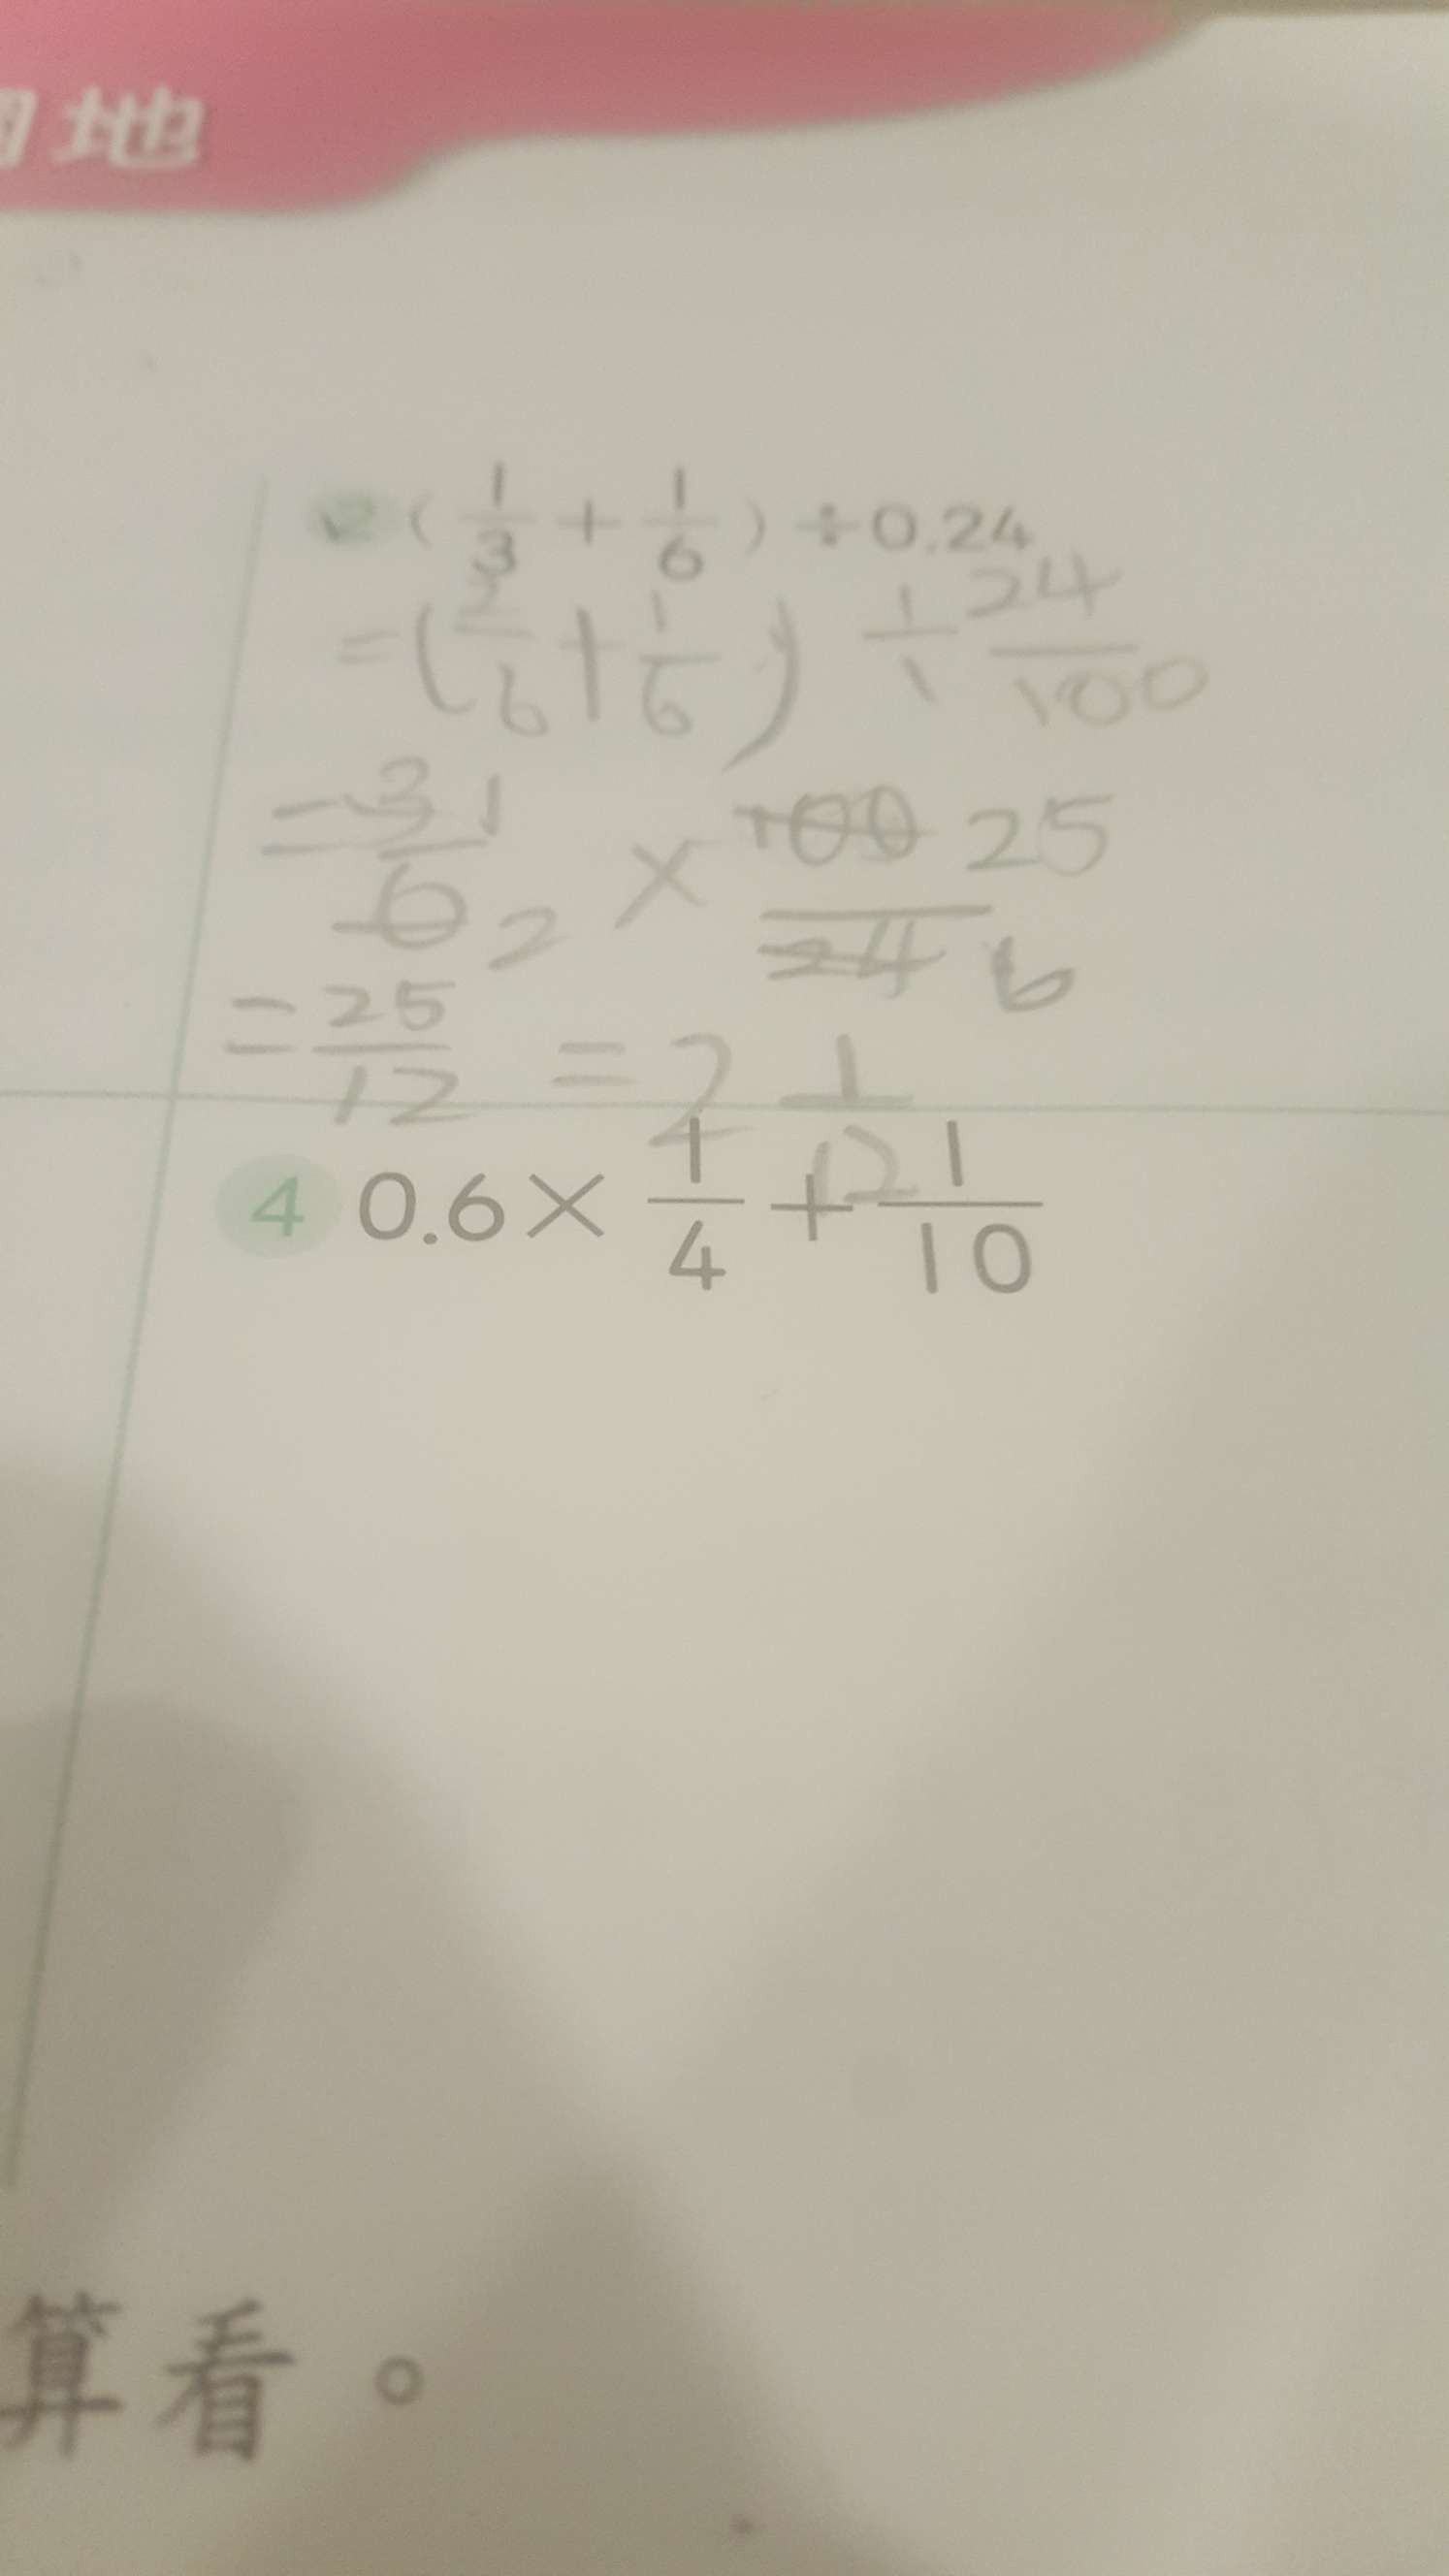 地
2 ( 1/3 + 1/6 ) ÷ 0.24
= ( 2/6 + 1/6 ) ÷ 24/100
= 3 1/6 2 × 100 25/24 6
= 25/12 = 2 1/12
4 0.6 × 1/4 + 1/10
算看。